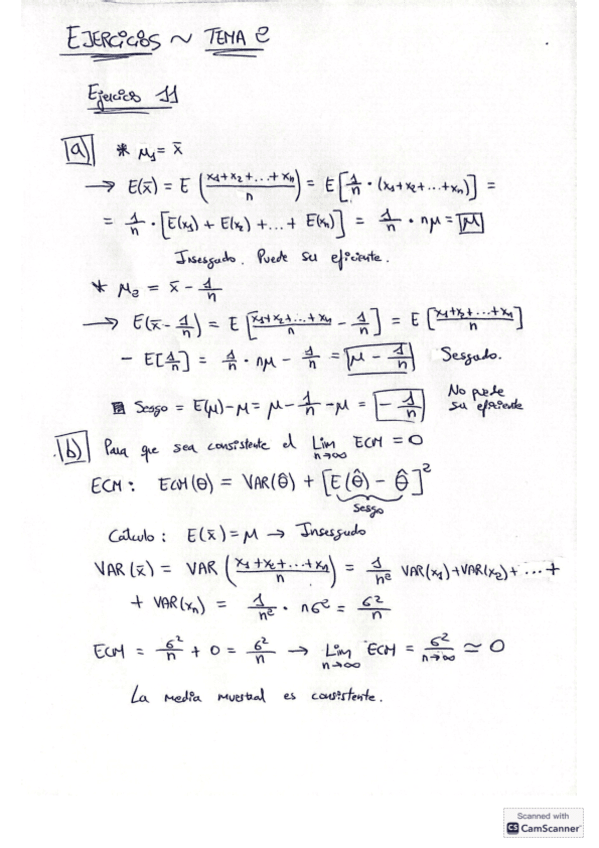 EJERCICIOS ~ TEMA 2
Ejercicio 11
a) * μ₁ = x̄
→ E(x̄) = E ((x₁+x₂+...+xₙ)/n) = E[1/n · (x₁+x₂+...+xₙ)] =
= 1/n · [E(x₁) + E(x₂) + ... + E(xₙ)] = 1/n · nμ = μ
Insesgado. Puede su eficiente.
* μ₂ = x̄ - 1/n
→ E(x̄ - 1/n) = E [(x₁+x₂+...+xₙ)/n - 1/n] = E [(x₁+x₂+...+xₙ)/n]
- E[1/n] = 1/n · nμ - 1/n = μ - 1/n Sesgado.
Sesgo = E(μ)-μ = μ - 1/n - μ = - 1/n No puede su eficiente
b) Para que sea consistente el Lim n→∞ ECM = 0
ECM: ECM(θ) = VAR(θ̂) + [E(θ̂) - θ̂]²
Sesgo
Cálculo: E(x̄) = μ → Insesgado
VAR(x̄) = VAR ((x₁+x₂+...+xₙ)/n) = 1/n² VAR(x₁)+VAR(x₂)+ ... +
+ VAR(xₙ) = 1/n² · nσ² = σ²/n
ECM = σ²/n + 0 = σ²/n → Lim n→∞ ECM = σ²/n→∞ ≃ 0
La media muestral es consistente.
Scanned with
CS CamScanner